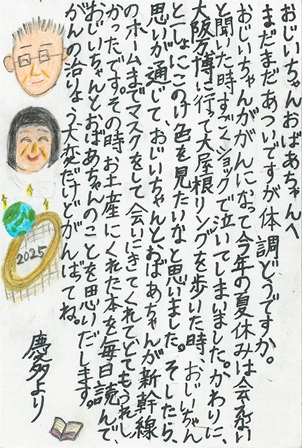 おじいちゃんおばあちゃんへ
まだまだあついですが体調どうですか。
おじいちゃんががんになって今年の夏休みは会えない
と聞いた時すごくショックで泣いてしまいました。かわりに、
大阪万博に行て大屋根リングを歩いた時、おじいちゃん
といっしょにこのけ色を見たいなと思いました。そしたら
思いが通じて、おじいちゃんとおばあちゃんが新幹線
のホームまでマスクをして会いにきてくれてとてもうれし
かったです。その時お土産にくれた本を毎日読んで、
おじいちゃんとおばあちゃんのことを思いだします。
がんの治りょう大変だけどがんばってね。
慶多より
2025